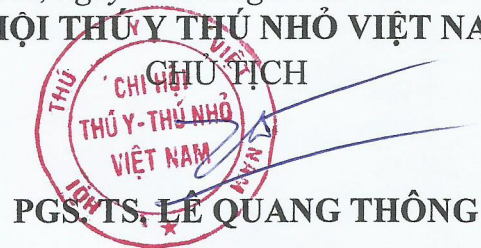 HỘI THÚ Y THÚ NHỎ VIỆT NA
CHỦ TỊCH
HỘI THÚ Y VIỆT NAM
CHI HỘI
THÚ Y - THÚ NHỎ
VIỆT NAM
PGS. TS. LÊ QUANG THÔNG